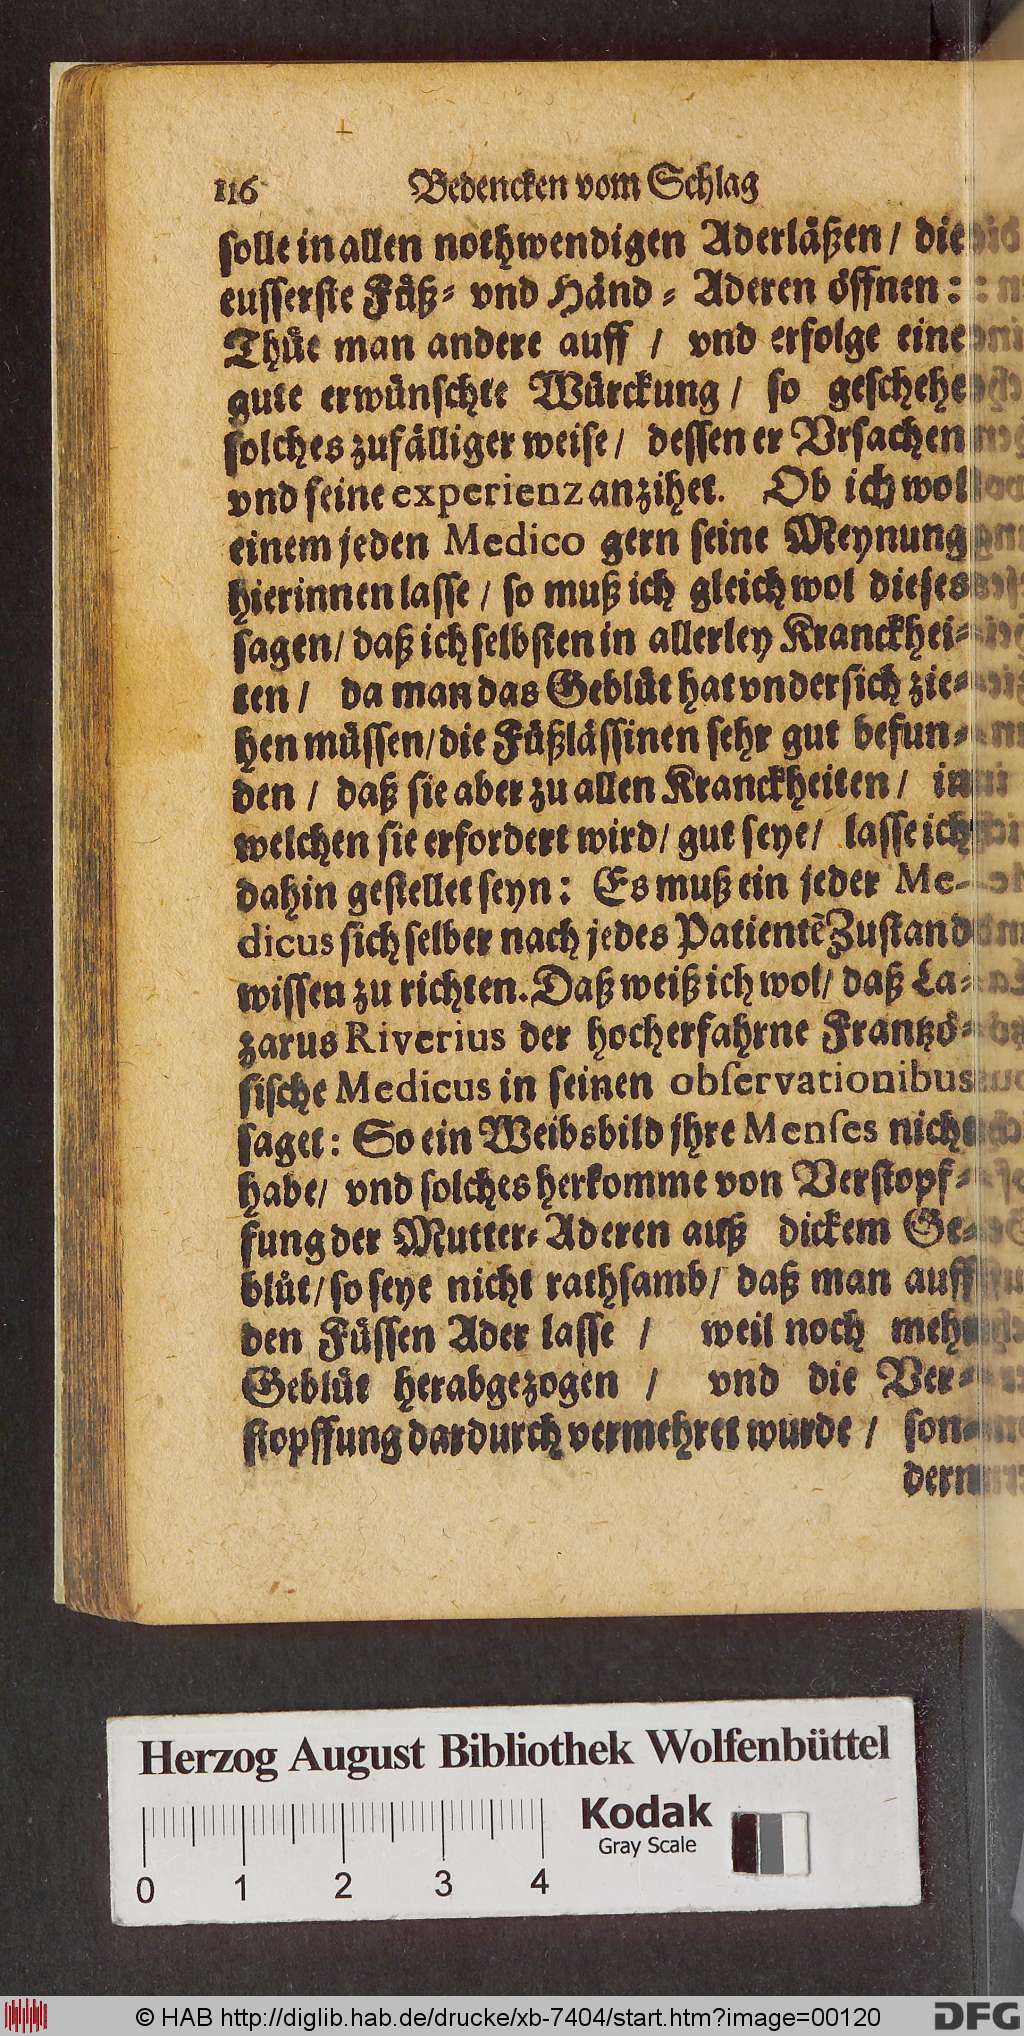 116 Bedencken vom Schlag
solle in allen nothwendigen Aderläßen / die
eusserste Fůß- vnd Händ-Aderen öffnen:
Thůe man andere auff / vnd erfolge eine
gute erwünschte Würckung / so geschehe
solches zufälliger weise / dessen er Vrsachen
vnd seine experienz anzihet. Ob ich wol
einem jeden Medico gern seine Meynung
hierinnen lasse / so muß ich gleich wol dieses
sagen / daß ich selbsten in allerley Kranckhei-
ten / da man das Geblůt hat vndersich zie-
hen müssen / die Füßlässinen sehr gut befun-
den / daß sie aber zu allen Kranckheiten / in
welchen sie erfordert wird / gut seye / lasse ich
dahin gestellet seyn: Es muß ein jeder Me-
dicus sich selber nach jedes Patientẽ Zustand
wissen zu richten. Daß weiß ich wol / daß La-
zarus Riverius der hocherfahrne Frantzö-
sische Medicus in seinen obſervationibus
saget: So ein Weibsbild jhre Menſes nicht
habe / vnd solches herkomme von Verstopf-
fung der Mutter-Aderen auß dickem Ge-
blůt / so seye nicht rathsamb / daß man auff
den Füssen Ader lasse / weil noch mehr
Geblůt herabgezogen / vnd die Ver-
stopffung dardurch vermehret wurde / son-
dern
Herzog August Bibliothek Wolfenbüttel
Kodak
Gray Scale
0 1 2 3 4
© HAB http://diglib.hab.de/drucke/xb-7404/start.htm?image=00120
DFG